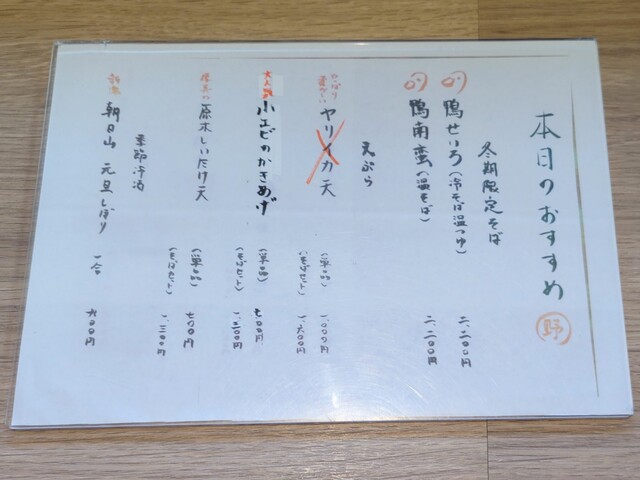 本日のおすすめ 野
冬期限定そば
鴨せいろ（冷そば温つゆ） 二、二〇〇円
鴨南蛮（温そば） 二、二〇〇円
天ぷら
やっぱり
ヤリイカ天 （単品） 一、〇〇〇円
（そばセット） 一、六〇〇円
大人気
小エビのかきあげ （単品） 七〇〇円
（そばセット） 一、三〇〇円
原木しいたけ天 （単品） 七〇〇円
（そばセット） 一、三〇〇円
季節冷酒
新酒
朝日山 元旦しぼり 一合 六〇〇円